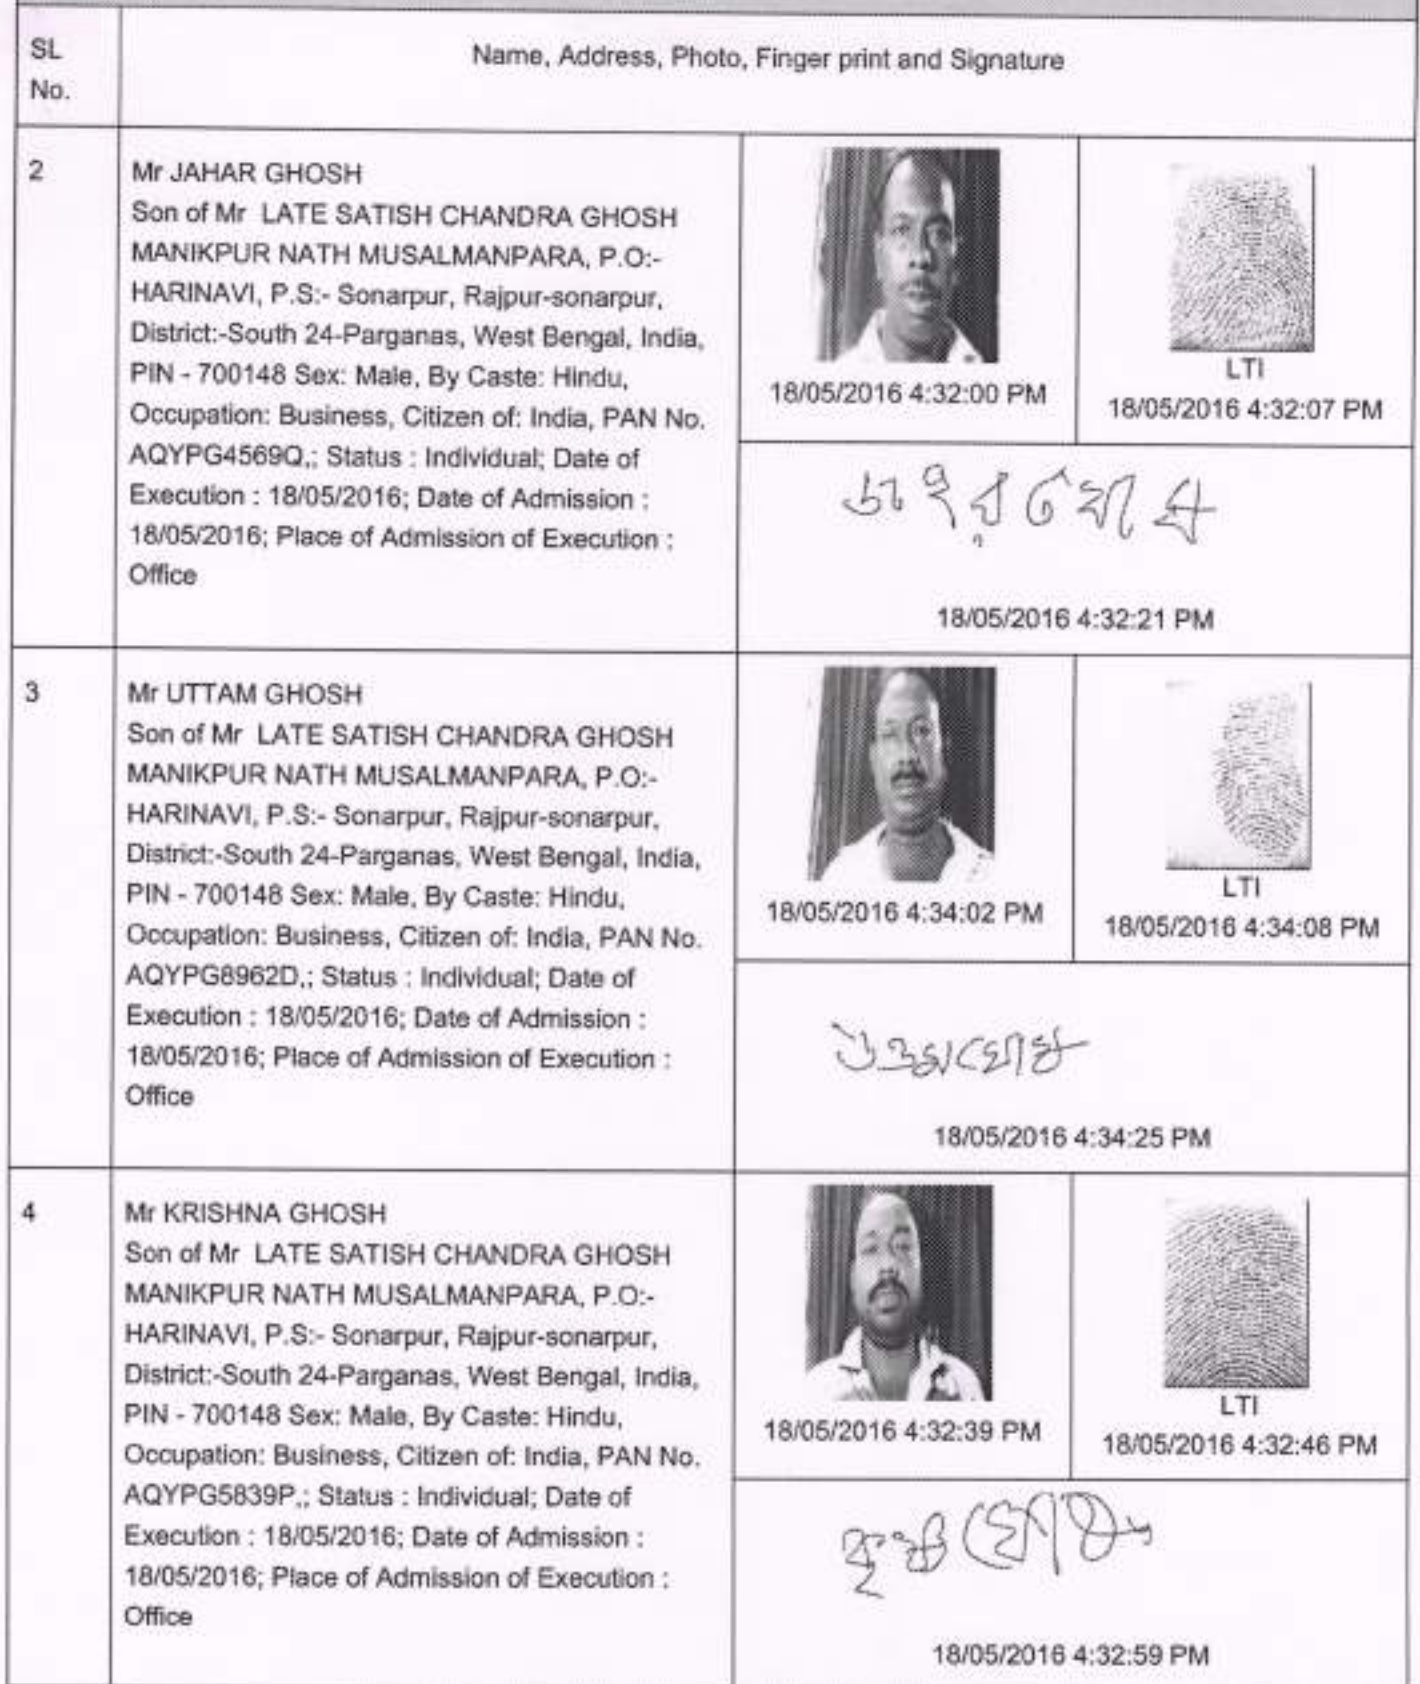 SL
No.
Name, Address, Photo, Finger print and Signature
2
Mr JAHAR GHOSH
Son of Mr LATE SATISH CHANDRA GHOSH
MANIKPUR NATH MUSALMANPARA, P.O:-
HARINAVI, P.S:- Sonarpur, Rajpur-sonarpur,
District:-South 24-Parganas, West Bengal, India,
PIN - 700148 Sex: Male, By Caste: Hindu,
Occupation: Business, Citizen of: India, PAN No.
AQYPG4569Q,; Status : Individual; Date of
Execution : 18/05/2016; Date of Admission :
18/05/2016; Place of Admission of Execution :
Office
18/05/2016 4:32:00 PM
LTI
18/05/2016 4:32:07 PM
জহর ঘোষ
18/05/2016 4:32:21 PM
3
Mr UTTAM GHOSH
Son of Mr LATE SATISH CHANDRA GHOSH
MANIKPUR NATH MUSALMANPARA, P.O:-
HARINAVI, P.S:- Sonarpur, Rajpur-sonarpur,
District:-South 24-Parganas, West Bengal, India,
PIN - 700148 Sex: Male, By Caste: Hindu,
Occupation: Business, Citizen of: India, PAN No.
AQYPG8962D,; Status : Individual; Date of
Execution : 18/05/2016; Date of Admission :
18/05/2016; Place of Admission of Execution :
Office
18/05/2016 4:34:02 PM
LTI
18/05/2016 4:34:08 PM
উত্তম ঘোষ
18/05/2016 4:34:25 PM
4
Mr KRISHNA GHOSH
Son of Mr LATE SATISH CHANDRA GHOSH
MANIKPUR NATH MUSALMANPARA, P.O:-
HARINAVI, P.S:- Sonarpur, Rajpur-sonarpur,
District:-South 24-Parganas, West Bengal, India,
PIN - 700148 Sex: Male, By Caste: Hindu,
Occupation: Business, Citizen of: India, PAN No.
AQYPG5839P,; Status : Individual; Date of
Execution : 18/05/2016; Date of Admission :
18/05/2016; Place of Admission of Execution :
Office
18/05/2016 4:32:39 PM
LTI
18/05/2016 4:32:46 PM
কৃষ্ণ ঘোষ
18/05/2016 4:32:59 PM